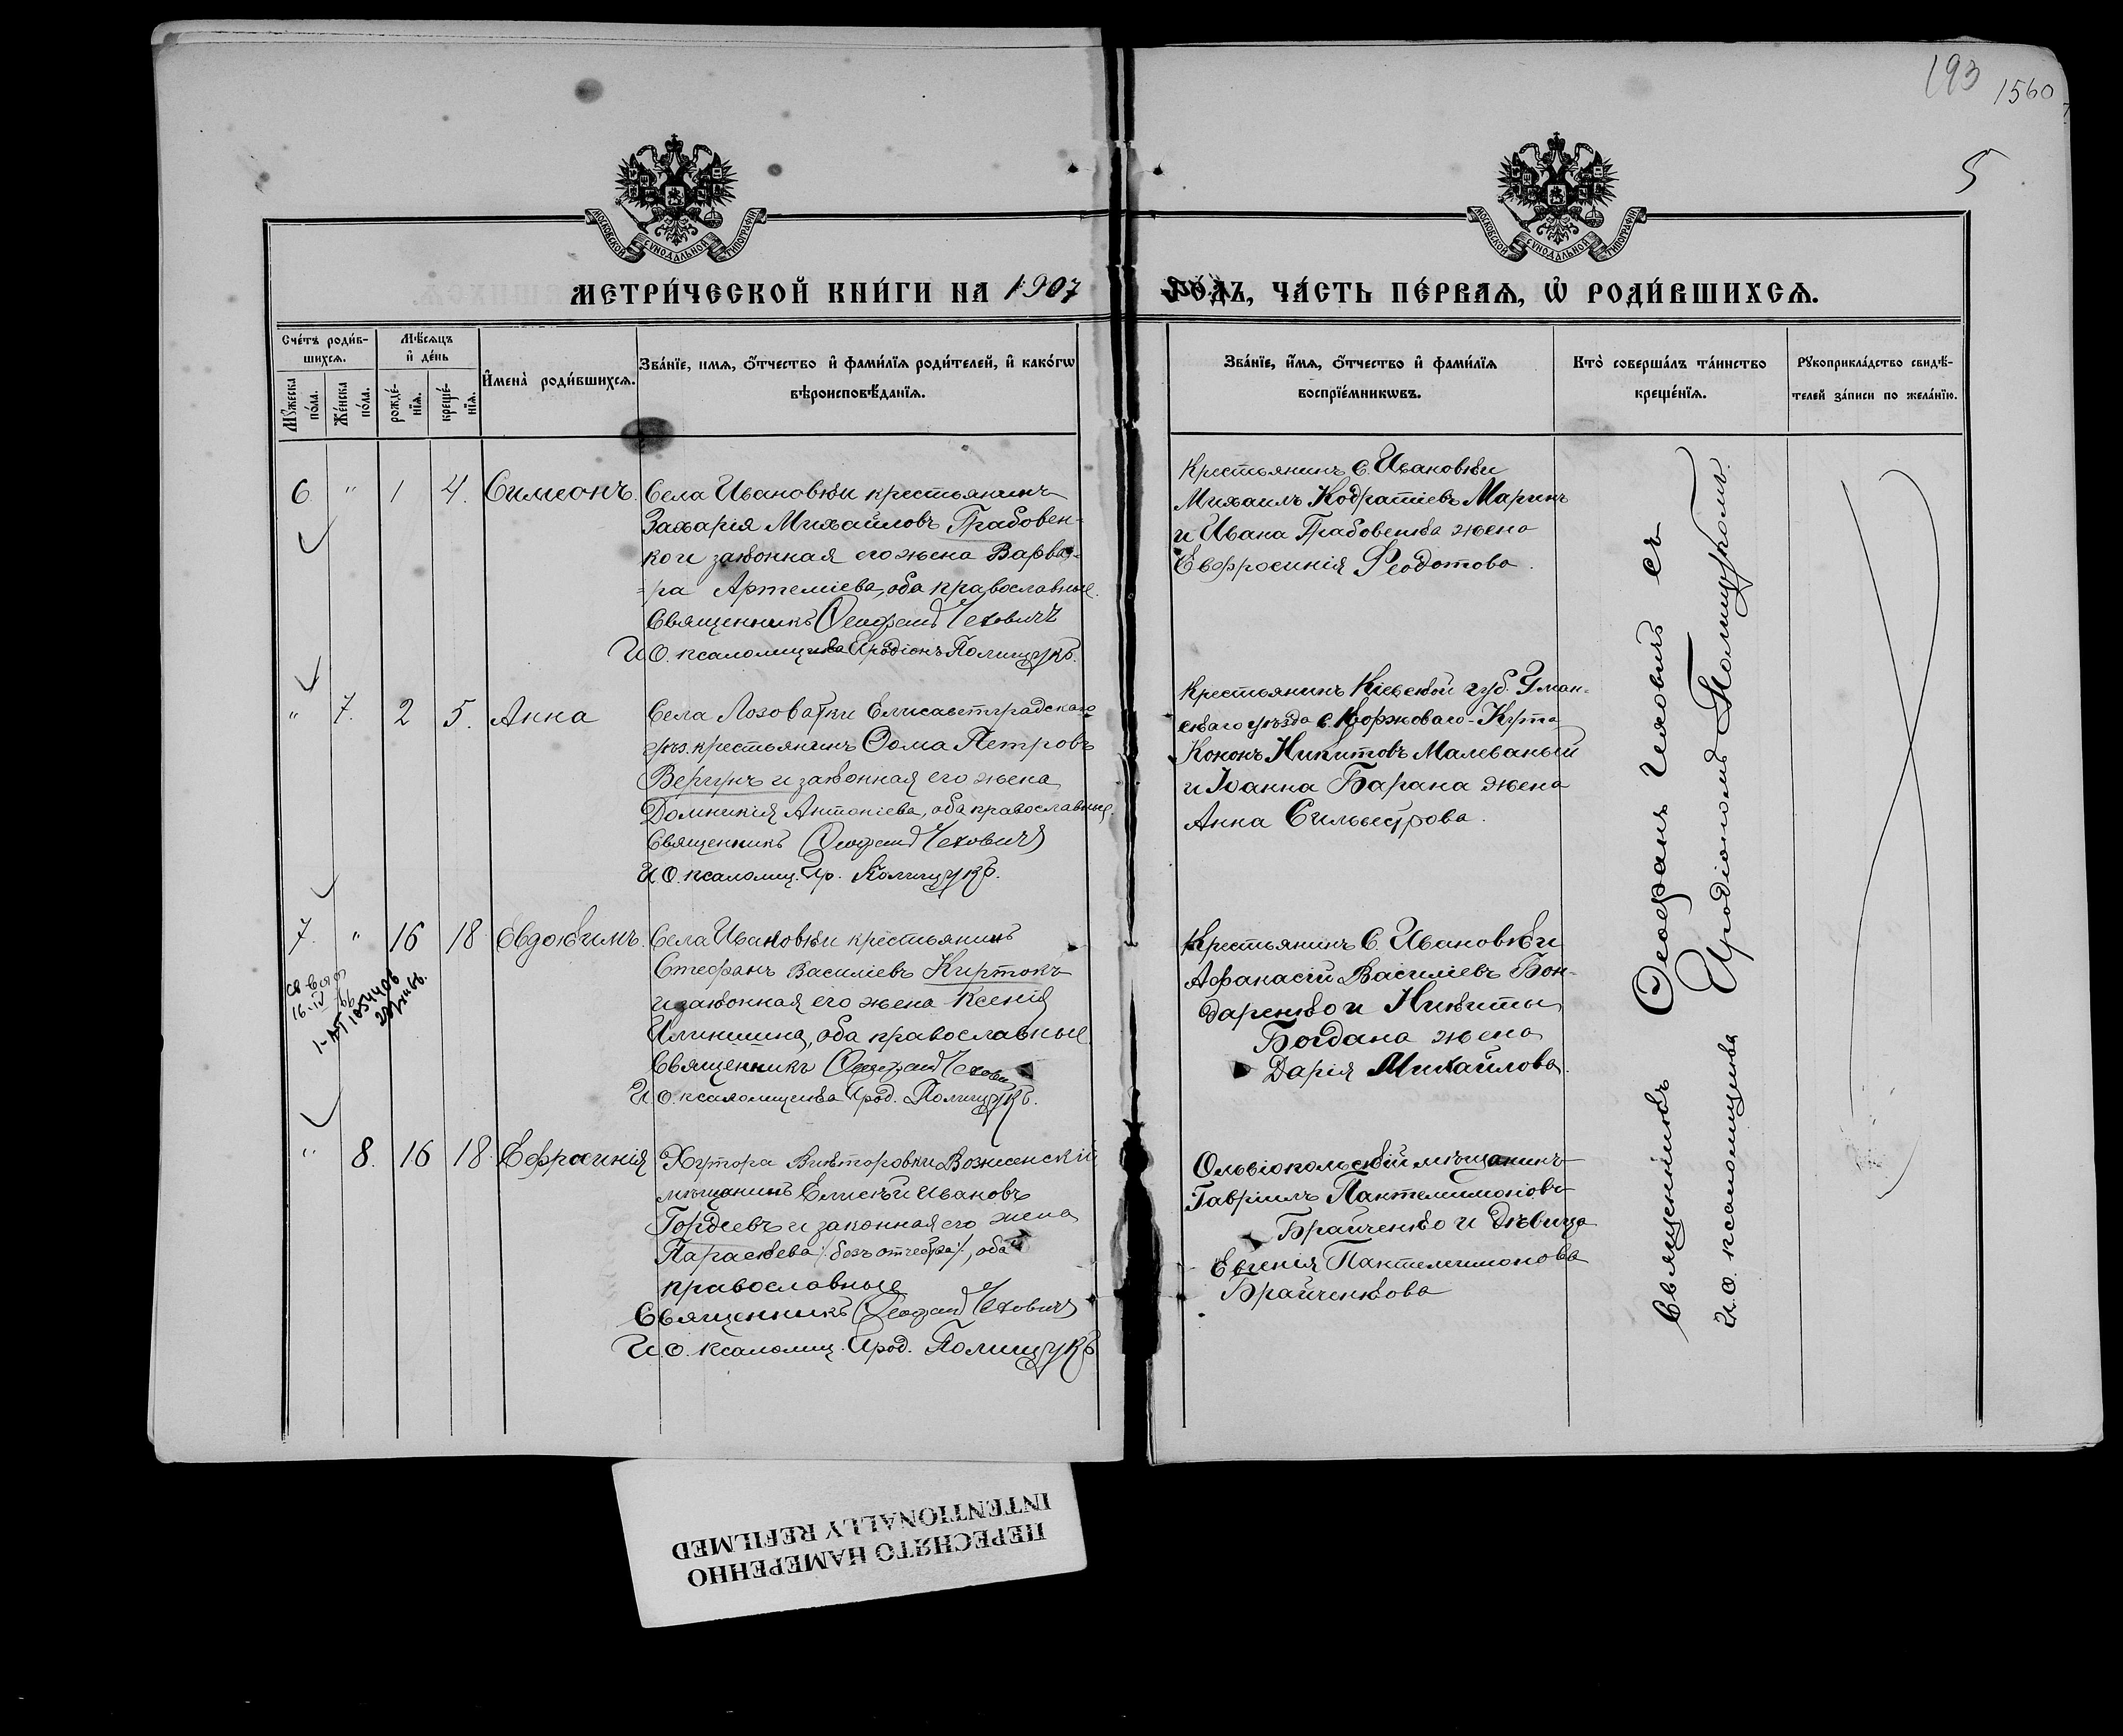 193 1560
5
МОСКОВСКОЙ СУНОДАЛЬНОЙ ТИПОГРАФІИ
МОСКОВСКОЙ СУНОДАЛЬНОЙ ТИПОГРАФІИ
МЕТРИ́ЧЕСКОЙ КНИ́ГИ НА 1907
ГО́ДЪ, ЧА́СТЬ ПЕ́РВАѦ, Ѡ҆ РОДИ́ВШИХСѦ.
Сче́тъ роди́в-
шихсѧ.
Мꙋ́жеска по́ла.
Же́нска по́ла.
Мѣ́сѧцъ
и҆ де́нь
рожде́-
нїѧ.
креще́-
нїѧ.
И҆мена̀ роди́вшихсѧ.
Зва́нїе, имѧ, ѻ҆́тчество и҆ фами́лїѧ роди́телей, и҆ како́гѡ
вѣроисповѣ́данїѧ.
Зва́нїе, и҆́мѧ, ѻ҆́тчество и҆ фами́лїѧ
воспрїе́мникѡвъ.
Кто̀ соверша́лъ та́инство
креще́нїѧ.
Рꙋкоприкла́дство свидѣ́-
телей за́писи по жела́нїю.
6 " 1 4. Симеонъ.
Села Ивановки крестьянинъ
Захарія Михайловъ Грабовен-
ко и законная его жена Варва-
=ра Артеміева, оба православные.
Священникъ Ѳеофанъ Чеховичъ
И.О. псаломщика Иродіонъ Полищукъ.
Крестьянинъ С. Ивановки
Михаилъ Кодратіевъ Маринъ
и Ивана Грабовенка жена
Евфросинія Ѳеодотова.
" 7. 2 5. Анна
Села Лозоватки Елисаветградскаго
уѣз. крестьянинъ Ѳома Петровъ
Вергунъ и законная его жена
Домникія Антоніева, оба православные.
Священникъ Ѳеофанъ Чеховичъ
И.О. псаломщ. Ир. Полищукъ.
Крестьянинъ Кіевской губ. Уман-
скаго уѣзда с. Коржоваго-Кута
Кононъ Никитовъ Малеваный
и Іоанна Барана жена
Анна Сильвестрова.
7. " 16 18 Евдокимъ.
Села Ивановки крестьянинъ
Стефанъ Василіевъ Киртокъ
и законная его жена Ксенія
Илиншина, оба православные.
Священникъ Ѳеофанъ Чехови
И.О. псаломщика Ирод. Полищукъ.
Крестьянинъ С. Ивановки
Афанасій Василіевъ Бон-
даренко и Никиты
Богдана жена
Дарія Михайлова.
" 8. 16 18. Ефросинія
Хутора Викторовки Вознесенскій
мѣщанинъ Елисѣй Ивановъ
Гордеевъ и законная его жена
Параскева /безъ отчества/, оба
православные
Священникъ Ѳеофанъ Чеховичъ
И.О. псаломщ. Ирод. Полищукъ
Ольвіопольскій мѣщанинъ
Гавріилъ Пантелимоновъ
Брайченко и дѣвица
Евгенія Пантелимонова
Брайченкова
Священникъ Ѳеофанъ Чеховичъ съ
И.О. псаломщика Иродіономъ Полищукомъ.
ПЕРЕСНЯТО НАМЕРЕННО
INTENTIONALLY REFILMED